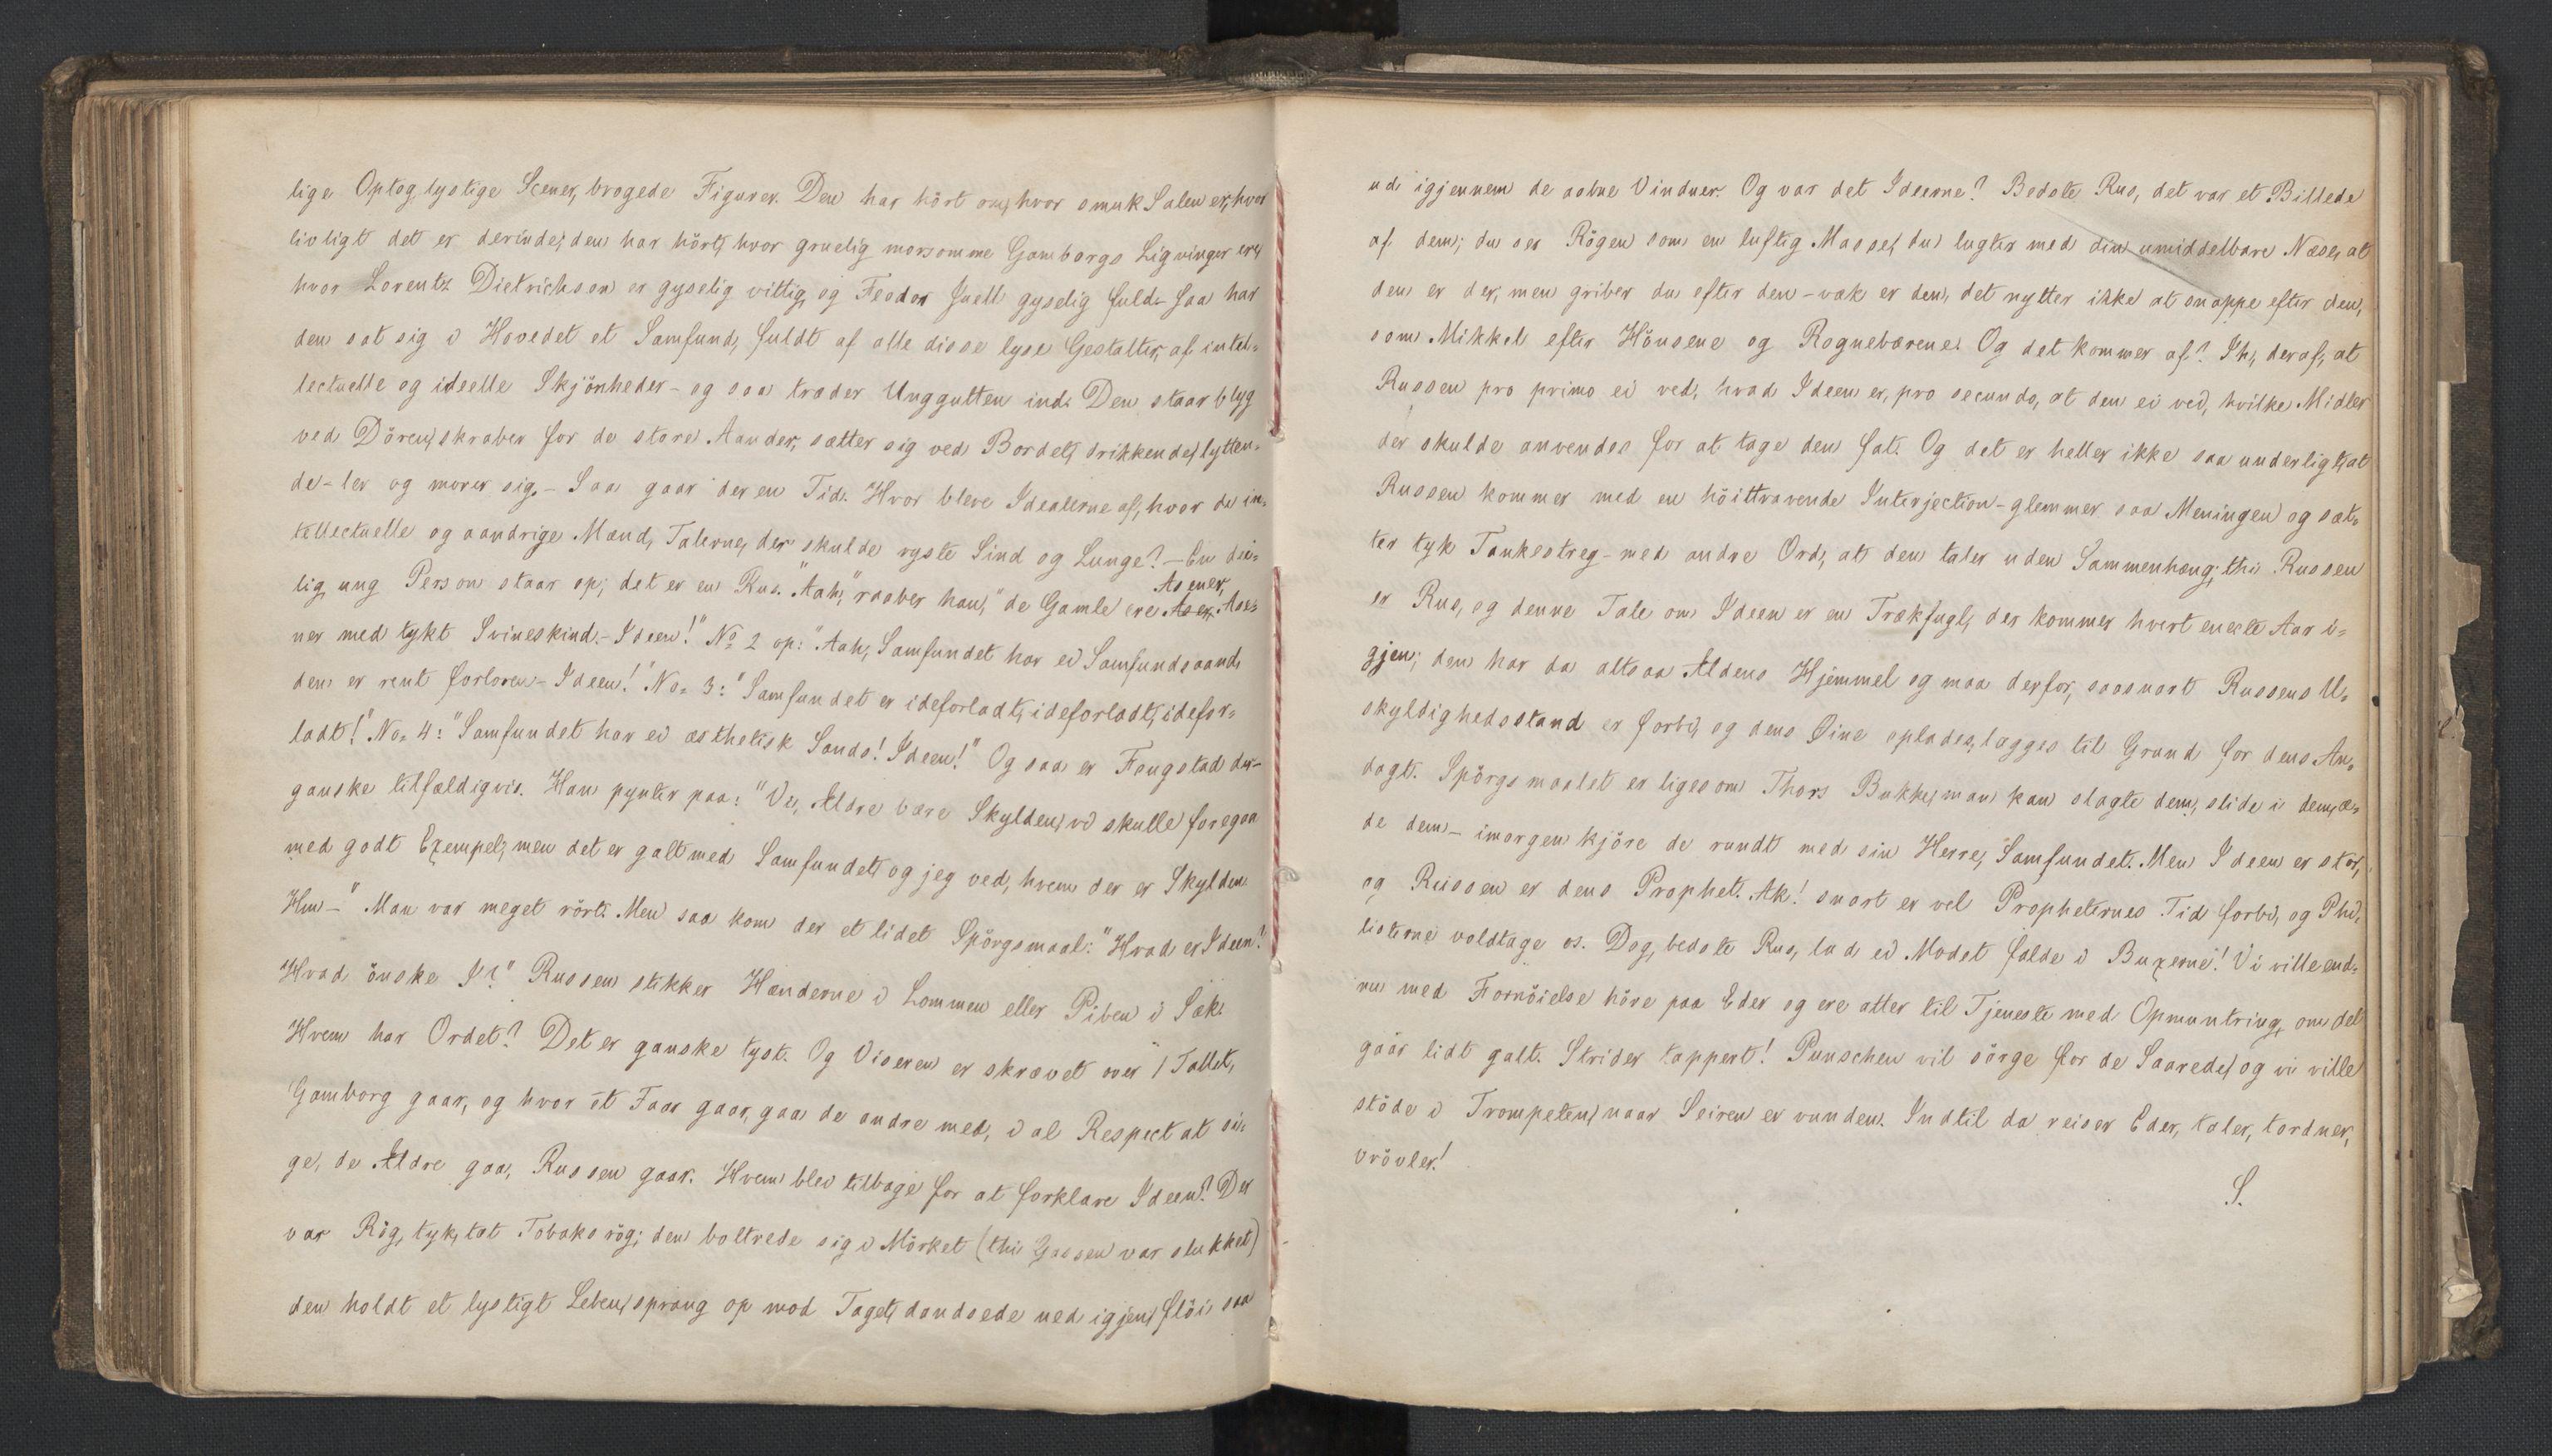 lige Optog, lystige Scener, brogede Figurer. Den har hört om, hvor smuk Salen er, hvor
livligt det er derinde; den har hört, hvor gruelig morsomme Gamborgs Ligvinger ere,
hvor Lorentz Dietrichson er gyselig vittig og Feodor Juell gyselig fuld. Saa har
den sat sig i Hovedet et Samfund, fuldt af alle disse lyse Gestalter, af intel-
lectuelle og ideelle Skjönheder - og saa træder Unggutten ind. Den staar blyg
ved Dören, skraber for de store Aander, sætter sig ved Bordet, drikkende, lytten-
de - ler og morer sig. - Saa gaar der en Tid. Hvor bleve Idealerne af, hvor de in-
tellectuelle og aandrige Mænd, Talerne, der skulde ryste Sind og Lunge? - En dei-
lig ung Person staar op; det er en Rus. "Aah," raaber han, "de Gamle ere Asener, Ase-
ner med tykt Svineskind - Ideen!" No 2 op: "Aah, Samfundet har ei Samfundsaand,
den er rent forloren - Ideen!" No. 3: "Samfundet er ideforladt, ideforladt, idefor-
ladt!" No. 4: "Samfundet har ei æsthetisk Sands! Ideen!" Og saa er Fougstad der -
ganske tilfældigvis. Han pynter paa: "Vi, Ældre bære Skylden, vi skulle foregaa
med godt Exempel, men det er galt med Samfundet, og jeg ved, hvem der er Skylden.
Hm -" Man var meget rört. Men saa kom der et lidet Spörgsmaal: "Hvad er Ideen?
Hvad önske I?" Russen stikker Hænderne i Lommen eller Piben i Sæk.
Hvem har Ordet? Det er ganske tyst. Og Viseren er skrævet over 1 Tallet,
Gamborg gaar, og hvor ét Faar gaar, gaa de andre med, i al Respect at si-
ge, de Ældre gaa, Russen gaar. Hvem blev tilbage for at forklare Ideen? Der
var Rög, tyk, tæt Tobaksrög; den boltrede sig i Mörket (thi Gassen var slukket)
den holdt et lystigt Leben, sprang op mod Taget, dandsede ned igjen, flöi saa
ud igjennem de aabne Vinduer. Og var det Ideerne? Bedste Rus, det var et Billede
af dem; du ser Rögen som en luftig Masse, du lugter med din umiddelbare Næse, at
den er der, men griber du efter den - væk er den, det nytter ikke at snappe efter den,
som Mikkel efter Hönsene og Rognebærene. Og det kommer af? Ih, deraf, at
Russen pro primo ei ved, hvad Ideen er, pro secundo, at den ei ved, hvilke Midler
der skulde anvendes for at tage den fat. Og det er heller ikke saa underligt, at
Russen kommer med en höittravende Interjection - glemmer saa Meningen og sæt-
ter tyk Tankestreg - med andre Ord, at den taler uden Sammenhæng; thi Russen
er Rus, og denne Tale om Ideen er en Trækfugl, der kommer hvert eneste Aar i-
gjen; den har da altsaa Ældens Hjemmel og maa derfor, saasnart Russens U-
skyldighedsstand er forbi, og dens Øine oplades, lægges til Grund for dens An-
dagt. Spörgsmaalet er ligesom Thors Bukke, man kan slagte dem, slide i dem, æ-
de dem - imorgen kjöre de rundt med sin Herre, Samfundet. Men Ideen er stor,
og Russen er dens Prophet. Ak! snart er vel Propheternes Tid forbi, og Phi-
listerne voldtage os. Dog, bedste Rus, lad ei Modet falde i Buxerne! Vi ville end-
nu med Fornöielse höre paa Eder og ere atter til Tjeneste med Opmuntring, om det
gaar lidt galt. Strider tappert! Punschen vil sörge for de Saarede, og vi ville
stöde i Trompeten, naar Seiren er vunden. Indtil da reiser Eder, taler, tordner,
vrövler!
S.